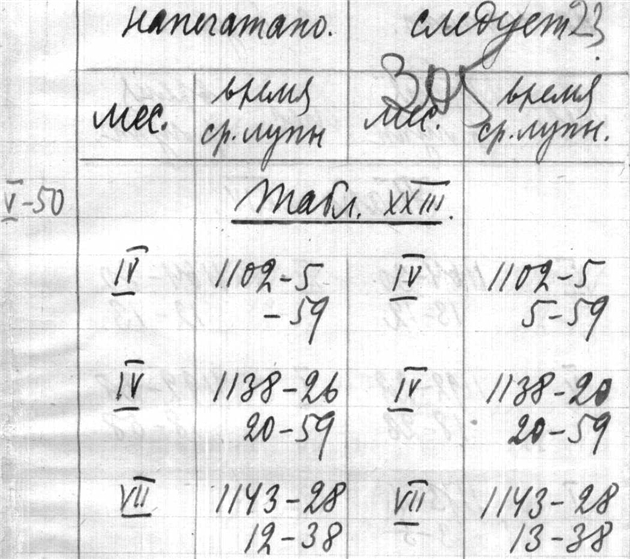 напечатано. следует 23
305
мес. время ср. лупн мес. время ср. лупн.
V-50
Табл. XXIII.
IV 1102-5 IV 1102-5
-59 5-59
IV 1138-26 IV 1138-20
20-59 20-59
VII 1143-28 VII 1143-28
12-38 13-38